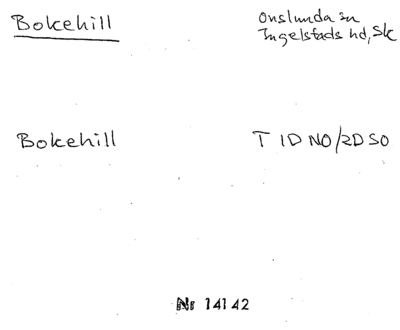 Bokehill
Onslunda sn
Ingelstads hd, Sk
Bokehill
T 1D NO/2D SO
Nr 14142